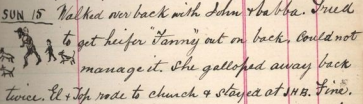 SUN 15 Walked over back with John & babba. Tried
to get heifer "Fanny out on back. Could not
manage it. She galloped away back
twice. El & Top rode to church & stayed at J.H.B. Fine.